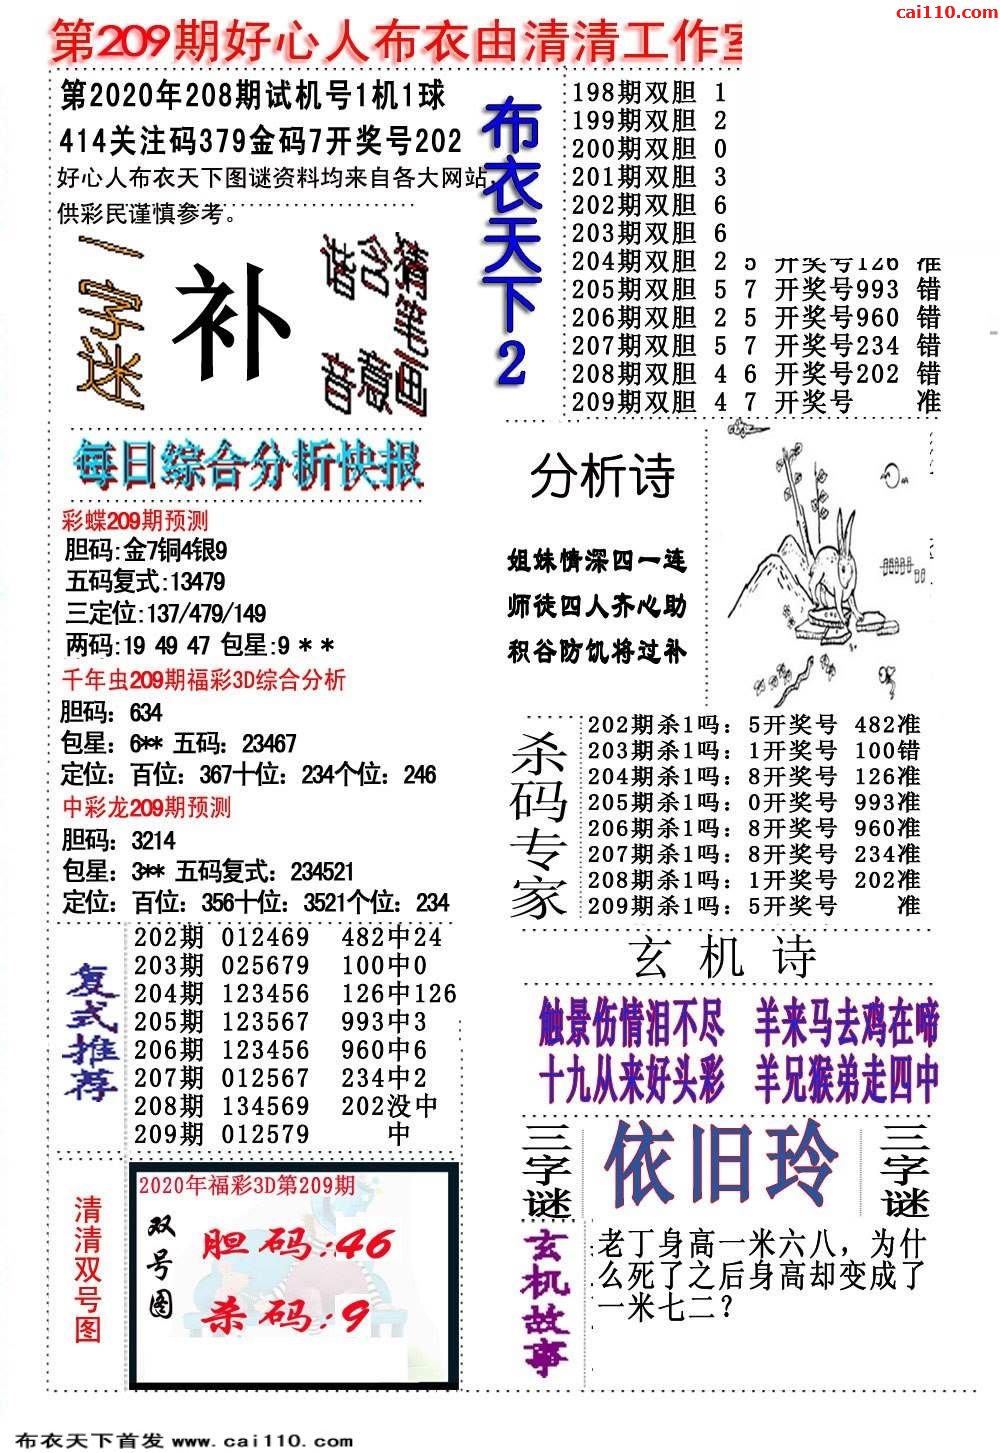 cai110.com
第209期好心人布衣由清清工作室
第2020年208期试机号1机1球
414关注码379金码7开奖号202
好心人布衣天下图谜资料均来自各大网站，
供彩民谨慎参考。
布衣天下2
198期双胆 1
199期双胆 2
200期双胆 0
201期双胆 3
202期双胆 6
203期双胆 6
204期双胆 2 5 开奖号126 准
205期双胆 5 7 开奖号993 错
206期双胆 2 5 开奖号960 错
207期双胆 5 7 开奖号234 错
208期双胆 4 6 开奖号202 错
209期双胆 4 7 开奖号 准
一字迷
补
猜笔画
含意
谐音
每日综合分析快报
彩蝶209期预测
胆码:金7铜4银9
五码复式:13479
三定位:137/479/149
两码:19 49 47 包星:9 * *
千年虫209期福彩3D综合分析
胆码：634
包星：6** 五码：23467
定位：百位：367十位：234个位：246
中彩龙209期预测
胆码：3214
包星：3** 五码复式：234521
定位：百位：356十位：3521个位：234
分析诗
姐妹情深四一连
师徒四人齐心助
积谷防饥将过补
杀码专家
202期杀1吗：5开奖号 482准
203期杀1吗：1开奖号 100错
204期杀1吗：8开奖号 126准
205期杀1吗：0开奖号 993准
206期杀1吗：8开奖号 960准
207期杀1吗：8开奖号 234准
208期杀1吗：1开奖号 202准
209期杀1吗：5开奖号 准
复式推荐
202期 012469 482中24
203期 025679 100中0
204期 123456 126中126
205期 123567 993中3
206期 123456 960中6
207期 012567 234中2
208期 134569 202没中
209期 012579 中
玄机诗
触景伤情泪不尽 羊来马去鸡在啼
十九从来好头彩 羊兄猴弟走四中
三字谜
依旧玲
三字谜
清清双号图
2020年福彩3D第209期
双号图
胆码:46
杀码:9
玄机故事
老丁身高一米六八，为什
么死了之后身高却变成了
一米七二？
布衣天下首发 www.cai110.com